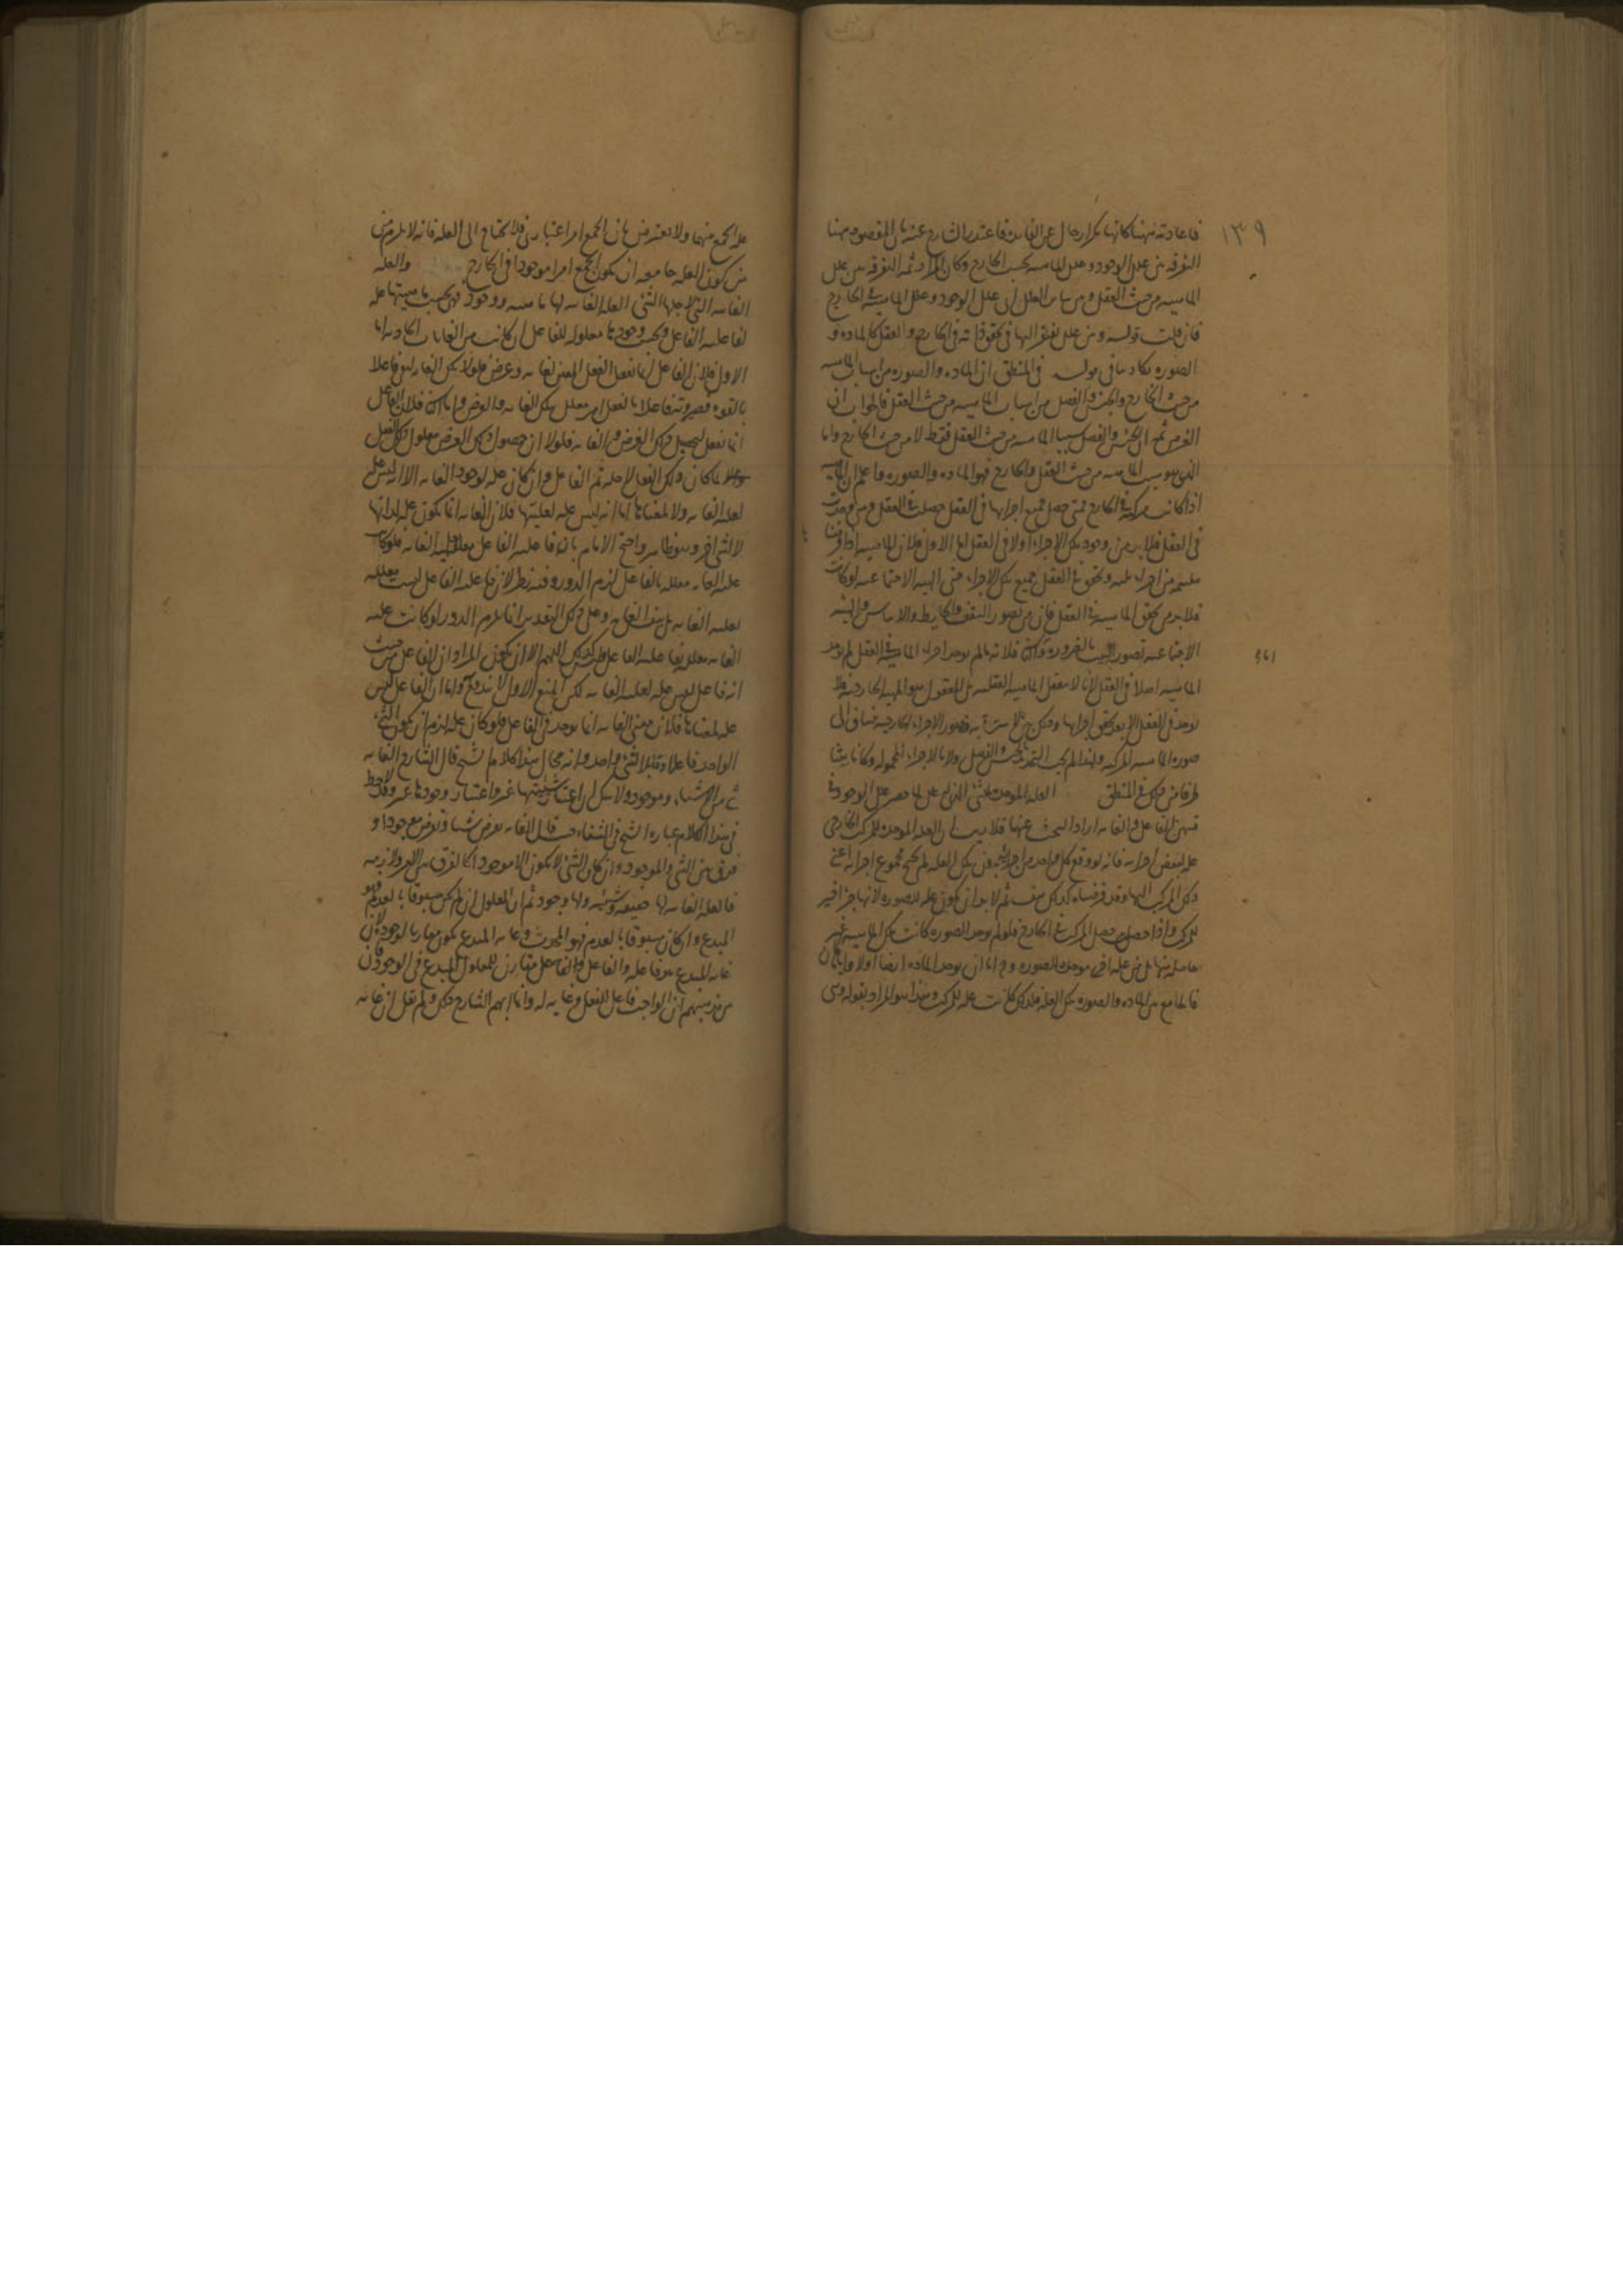 ١٣٩
فاعادته ههنا كانها تكرار خال عن الفايدة فاعتذر الشارح عنه بان المقصود ههنا
التفرقة بين علل الوجود وعلل الماهية بحسب الخارج وكان المراد ثمه التفرقة بين علل
الماهية من حيث العقل وبين ساير العلل اي علل الوجود وعلل الماهية في الخارج
فان قلت قوله وبين علل يفتقر اليها في تحقق ذاته في الخارج والعقل كالمادة و
الصورة يكاد ينافي قوله في المنطق ان المادة والصورة من اسباب الماهية
من حيث الخارج والجنس والفصل من اسباب الماهية من حيث العقل فالجواب ان
الغرض ثمه ان الجنس والفصل سببا الماهية من حيث العقل فقط لا من حيث الخارج واما
الذي هو سبب الماهية من حيث العقل والخارج فهو المادة والصورة واعلم ان الماهية
اذا كانت مركبة في الخارج فمتى حصل جميع اجزايها في العقل حصلت في العقل ومتى وجدت
في العقل فلا بد من وجود تلك الاجزاء اولا في العقل اما الاول فلان الماهية اذا فرضنا
ملتئمة من اجزاء خمسة وتحقق في العقل جميع تلك الاجزاء حتى الهيئة الاجتماعية لو كانت
فلا بد من تحقق الماهية في العقل فان من تصور السقف والحايط والاساس والهيئة
الاجتماعية تصور البيت بالضرورة واما الثاني فلانه ما لم يوجد اجزاء الماهية في العقل لم يوجد
الماهية اصلا في العقل لانا لا نعقل الماهية العقلية بل المعقول هو الماهية الخارجية فلا
يوجد في العقل الا بعد تحقق اجزايها وذلك مما لا سترة به وتصور الاجزاء الخارجية ينساق الى
صورة الماهية المركبة ولهذا لم يجب التحديد بالجنس والفصل ولا بالاجزاء المحمولة وكنا بيّنا
طرفا من ذلك في المنطق العلة الموجدة للشيء الذي له علل لما حصر علل الوجود في
قسمين الفاعل والغاية اراد البحث عنها فلا ريب ان العلة الموجدة للمركب الخارجي
علة لبعض اجزايه فانه لو وقع كل واحد من اجزايه بدون تلك العلة لم يحتج مجموع اجزايه اعني
ذلك المركب اليها وقد فرضناه كذلك هف ثم لا بد ان تكون علة للصورة لانها جزء اخير
للمركب واذا حصل حصل المركب في الخارج فلو لم يوجد الصورة كانت تلك الماهية غير
حاصلة منها بل من علة اخرى موجدة للصورة وح اما ان يوجد المادة ايضا اولا واياما كان
فالجامع بين المادة والصورة تلك العلة فلذلك كانت علة للمركب وهذا هو المراد بقوله وهي
علة الجمع بينهما ولا يعترض بان الجمع امر اعتباري فلا يحتاج الى العلة فانه لا يلزم من
من كون العلة جامعة ان يكون الجمع امرا موجودا في الخارج والعلة
الغائية التي لاجلها الشيء العلة الغائية لها ماهية ووجود فهي بحسب ماهيتها علة
لفاعلية الفاعل وبحسب وجودها معلولة للفاعل ان كانت من الغايات الحادثة اما
الاول فلان الفاعل انما يفعل الفعل المعين لغاية وغرض فلولا تلك الغاية لبقي فاعلا
بالقوة فصيرورته فاعلا بالفعل امر معلل بتلك الغاية والغرض واما الثاني فلان الفاعل
انما يفعل لتحصيل ذلك الغرض والغاية فلولا ان حصول ذلك الغرض معلول ذلك الفعل
والا لما كان ذلك الفعل لاجله ثم الفاعل وان كان علة لوجود الغاية الا انه ليس علة
لعلية الغاية ولا لمعناها اما انه ليس علة لعليتها فلان الغاية انما تكون علة لذاتها
لا لشيء اخر وهو ظاهر واحتج الامام بان فاعلية الفاعل معللة بعلية الغاية فلو كانت
علية الغاية معللة بالفاعل لزم الدور وفيه نظر لان فاعلية الفاعل ليست معللة
بعلية الغاية بل بنفس الغاية وعلى ذلك التقدير انما يلزم الدور لو كانت علية
الغاية معللة بفاعلية الفاعل وليس كذلك اللهم الا ان يكون المراد ان الفاعل من حيث
انه فاعل ليس علة لعلية الغاية لكن المنع الاول لا يندفع واما ان الفاعل ليس
علة لمعناها فلان معنى الغاية انما يوجد في الفاعل فلو كان علة لزم ان يكون الشيء
الواحد فاعلا وقابلا لشيء واحد وانه محال هذا كلام الشيخ قال الشارح الغاية
شيء من الاشياء وموجود ولا شك ان اعتبار شيئيتها غير اعتبار وجودها وقد لاحظ
في هذا الكلام عبارة الشيخ في الشفاء حيث قال الغاية تفرض شيئا وتفرض موجودا و
فرق بين الشيء والموجود وان كان الشيء لا يكون الا موجودا كالفرق بين الامر ولازمه
فالعلة الغائية لها حقيقة وشيئية ولها وجود ثم ان المعلول ان لم يكن مسبوقا بالعدم فهو
المبدع وان كان مسبوقا بالعدم فهو المحدث وغاية المبدع تكون مقارنا لوجوده لان
غاية المبدع هو فاعله والفاعل والغاية مقارن للمعلول المبدع في الوجود فان
من مذهبهم ان الواجب فاعل للفعل وغاية له وانما ابهم الشارح ذلك ولم يقل ان غاية